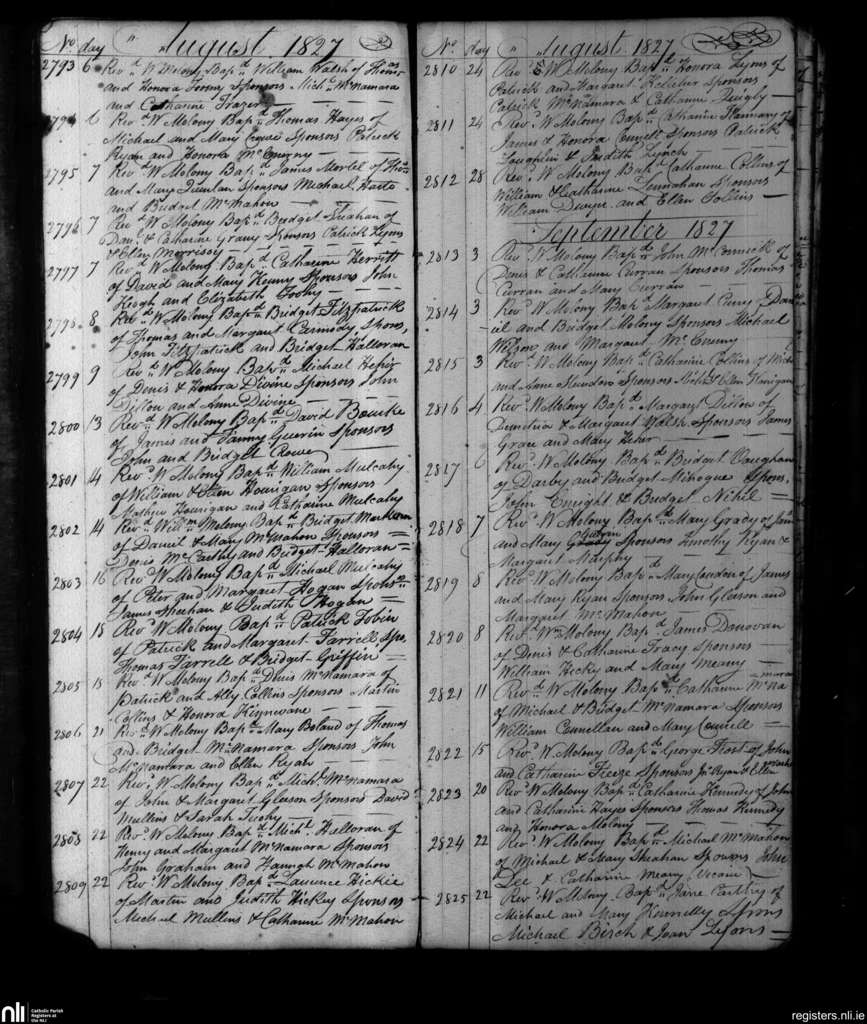 No. day " August 1827
2793 6 Revd. W Molony Bapd. William Walsh of Thomas
and Honora Sponsors Michl. McNamara
and Catharine Frazer
2794 6 Revd. W Molony Bapd. Thomas Hayes of
Michael and Mary Sponsors Patrick
Ryan and Honora McEnerny
2795 7 Revd. W Molony Bapd. James Mortel of Thos.
and Mary Quinlan Sponsors Michael Harte
and Bridget McMahon
2796 7 Revd. W Molony Bapd. Bridget of
Danl. & Catharine Grany Sponsors Patrick Lyons
& Ellen Morrissy
2797 7 Revd. W Molony Bapd. Catharine Herritt
of David and Mary Kenny Sponsors John
Keogh and Elizabeth Toohy
2798 8 Revd. W Molony Bapd. Bridget Fitzpatrick
of Thomas and Margaret Carmody Spons.
John Fitzpatrick and Bridget Halloran
2799 9 Revd. W Molony Bapd. Michael
of Denis & Honora Divine Sponsors John
Dillon and Anne Divine
2800 13 Revd. W Molony Bapd. David Bourke
of James and Fanny Guerin Sponsors
John and Bridget Crowe
2801 14 Revd. W Molony Bapd. William Mulcahy
of William & Ellen Hourigan Sponsors
Mathew Hourigan and Katharine Mulcahy
2802 14 Revd. Willm. Molony Bapd. Bridget
of Daniel & Mary McMahon Sponsors
Denis McCarthy and Bridget Halloran
2803 16 Revd. W Molony Bapd. Michael Mulcahy
of Peter and Margaret Hogan Sponsrs.
James Sheehan & Judith Hogan
2804 18 Revd. W Molony Bapd. Patrick Tobin
of Patrick and Margaret Farrell Spo.
Thomas Farrell & Bridget Griffin
2805 18 Revd. W Molony Bapd. Denis McNamara of
Patrick and Ally Collins Sponsors Martin
Collins & Honora Kinnevane
2806 21 Revd. W Molony Bapd. Mary Boland of Thomas
and Bridget McNamara Sponsors John
McNamara and Ellen Ryan
2807 22 Revd. W Molony Bapd. Michl. McNamara
of John & Margaret Gleeson Sponsors David
Mullins & Sarah Tuohy
2808 22 Revd. W Molony Bapd. Michl. Halloran of
Henry and Margaret McNamara Sponsors
John Graham and Hannah McMahon
2809 22 Revd. W Molony Bapd. Laurence Hickie
of Martin and Judith Hickey Sponsors
Michael Mullins & Catharine McMahon
No. day " August 1827
2810 24 Revd. W Molony Bapd. Honora Lyons of
Patrick and Margaret Kelleher Sponsors
Patrick McNamara & Catharine Quigly
2811 24 Revd. W Molony Bapd. Catharine Flannery of
James & Honora Connell Sponsors Patrick
Loughlin & Judith Lynch
2812 28 Revd. W Molony Bapd. Catharine Collins of
William & Catharine Linnahan Sponsors
William Dwyer and Ellen Collins
September 1827
2813 3 Revd. W Molony Bapd. John McCormick of
Denis & Catharine Curran Sponsors Thomas
Curran and Mary Curran
2814 3 Revd. W Molony Bapd. Margaret Curry Dan
iel and Bridget Molony Sponsors Michael
Wilson and Margaret McEnerny
2815 3 Revd. W Molony Bapd. Catharine Collins of Mich
and Anne Sponsors Michl. & Ellen Horigan
2816 4 Revd. W Molony Bapd. Margaret Dillon of
& Margaret Walsh Sponsors James
Grace and Mary
2817 6 Revd. W Molony Bapd. Bridget Vaughan
of Darby and Bridget Spons.
John Enright & Bridget Nihil
2818 7 Revd. W Molony Bapd. Mary Grady of Jas
and Mary Guerin Sponsors Timothy Ryan &
Margaret Murphy
2819 8 Revd. W Molony Bapd. Mary Condon of James
and Mary Ryan Sponsors John Gleeson and
Margaret McMahon
2820 8 Revd. Wm Molony Bapd. James Donovan
of Denis & Catharine Tracy Sponsors
William Hicky and Mary Meany
2821 11 Revd. W Molony Bapd. Catharine McNa
mara
of Michael & Bridget McNamara Sponsors
William Connellan and Mary Connell
2822 15 Revd. W Molony Bapd. George of John
and Catharine Freeze Sponsors Jn. Ryan & Ellen
2823 20 Revd. W Molony Bapd. Catharine Kennedy of John
and Catharine Hayes Sponsors Thomas Kennedy
and Honora Molony
2824 22 Revd. W Molony Bapd. Michael McMahon
of Michael & Mary Sheahan Sponsors John
Lee & Catharine Meany
2825 22 Revd. W Molony Bapd. Jane of
Michael and Mary Kennelly Spons
Michael Birch & Joan Lyons
nli
Catholic Parish
Registers at
the NLI
registers.nli.ie